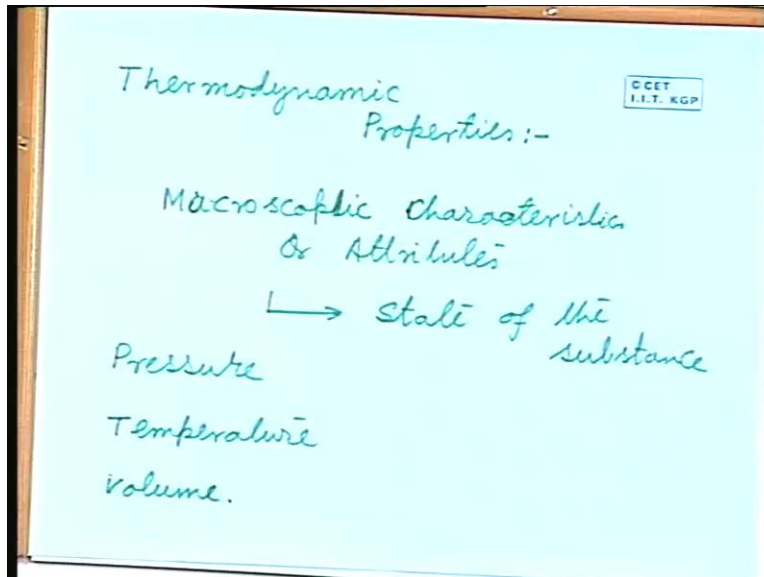 Thermodynamic
Properties:-
© CET
I.I.T. KGP
Macroscopic characteristics
Or Attributes
→ State of the
substance
Pressure
Temperature
Volume.